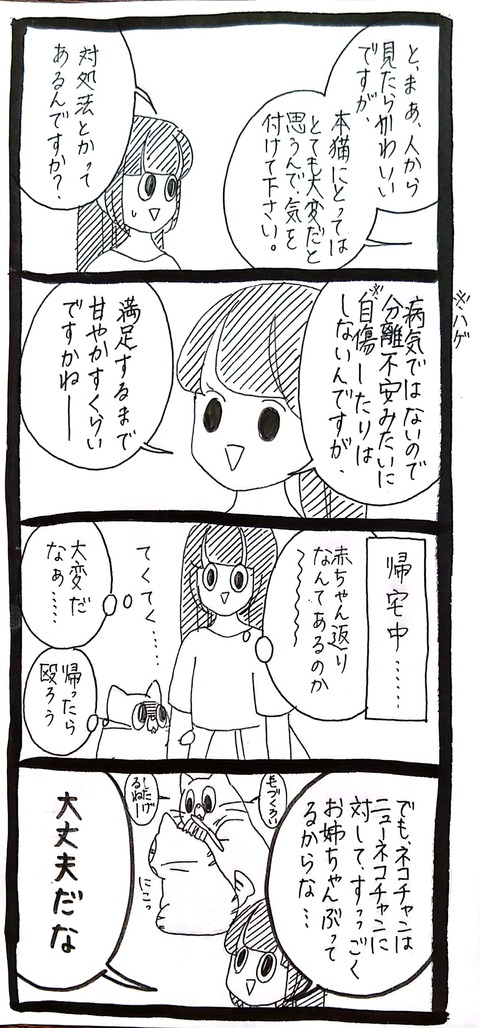 と、まあ、人から
見たらかわいい
ですが、
本猫にとっては
とても大変だと
思うんで、気を
付けて下さい。
対処法とかって
あるんですか?
病気ではないので
分離不安みたいに
自傷※したりは
しないんですが、
※ハゲ
満足するまで
甘やかすくらい
ですかねー
帰宅中……
赤ちゃん返り
なんてあるのか
てくてく……
大変だ
なぁ……
帰ったら
殴ろう
でも、ネコチャンは
ニューネコチャンに
対して、すっっごく
お姉ちゃんぶって
るからな…
毛づくろい
したげ
るねー
にこっ
大丈夫だな